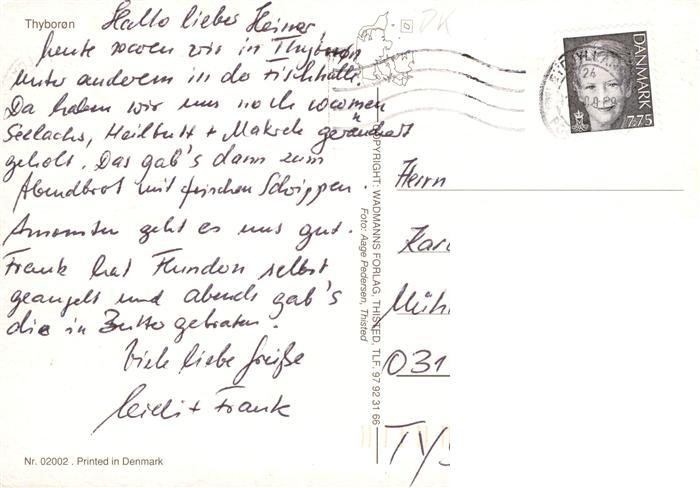 Thyborøn
Hallo lieber Heiner
heute waren wir in Thyborøn
unter anderem in der Fischhalle.
Da haben wir uns noch warmen
Seelachs, Heilbutt + Makrele geräuchert
geholt. Das gab's dann zum
Abendbrot mit frischen Schrippen.
Ansonsten geht es uns gut.
Frank hat Flundern selbst
geangelt und abends gab's
die in Butter gebraten.
Viele liebe Grüße
Heidi + Frank
Nr. 02002 . Printed in Denmark
COPYRIGHT: WADMANNS FORLAG, THISTED, TLF. 97 92 31 66
Foto: Aage Pedersen, Thisted
DK
DANMARK
7.75
26
Herrn
Kar
Müh
031
TYS